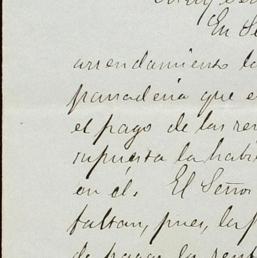 En Se
arrendamiento lo
panaderia que e
el pago de las re
supuesta la habi
en él. El Señor
faltan, pues, la p
de pagar la rent